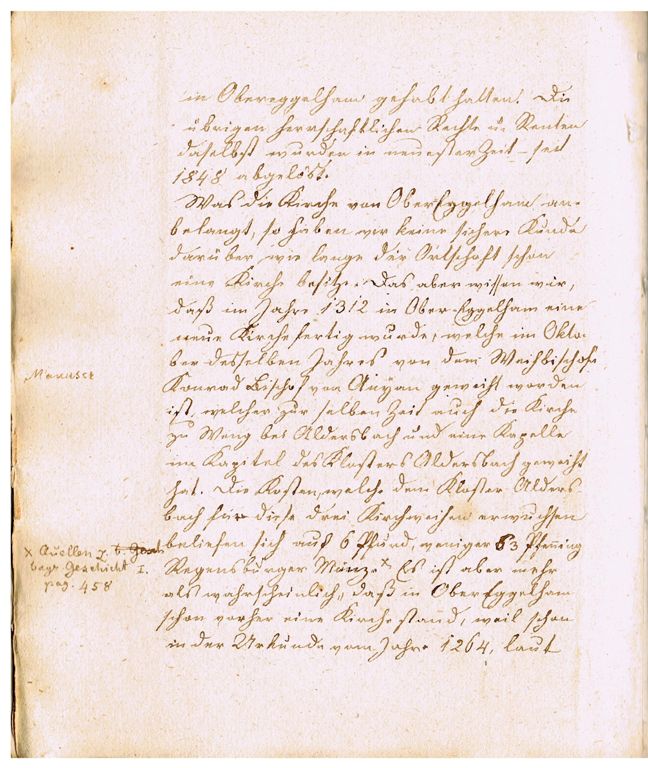 in Obereggelham gehabt hatten. Die
übrigen herrschaftlichen Rechte u. Renten
daselbst wurden in neuester Zeit – seit
1848 abgelöst.
Was die Kirche von OberEggelham an-
belangt, so haben wir keine sichere Kunde
darüber, wie lange der Ortschaft schon
eine Kirche besitze. Das aber wissen wir,
daß im Jahre 1312 in Ober-Eggelham eine
neue Kirche fertig wurde, welche im Okto-
ber desselben Jahres von dem Weihbischofe
Manusct
Konrad Bischof von geweiht worden
ist, welcher zur selben Zeit auch die Kirche
zu Weng bei Aldersbach und eine Kapelle
im Kapitel des Klosters Aldersbach geweiht
hat. Die Kosten, welche dem Kloster Alders-
bach für diese drei Kirchweihen erwuchsen
beliefen sich auf 6 Pfund, weniger 83 Pfenning
x Quellen z. b.
bayr. Geschicht I.
pag. 458
Regensburger Münze.x Es ist aber mehr
als wahrscheinlich, daß in OberEggelham
schon vorher eine Kirche stand, weil schon
in der Urkunde vom Jahre 1264, laut